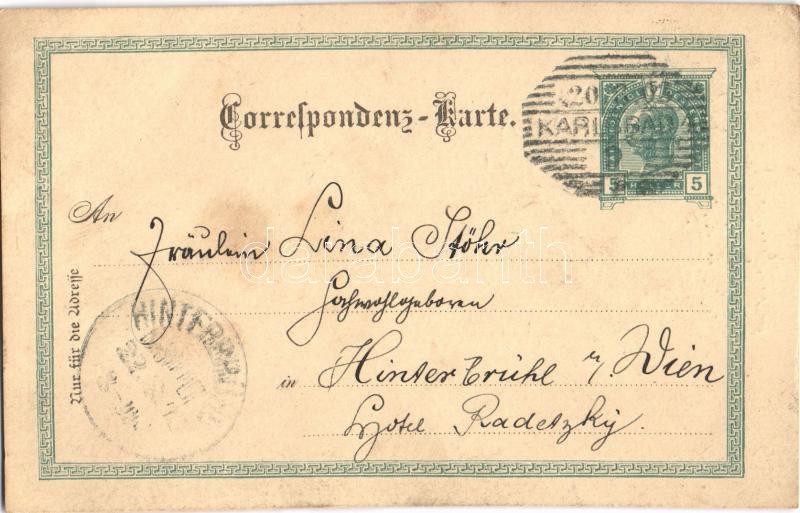 Correspondenz-Karte.
20
KARLSBAD
5 HELLER 5
An
Fräulein Lina Stöhr
Hochwohlgeboren
in Hinterbrühl b/ Wien
Hotel Radetzky
Nur für die Adresse
HINTERBRÜHL
22
darabanth